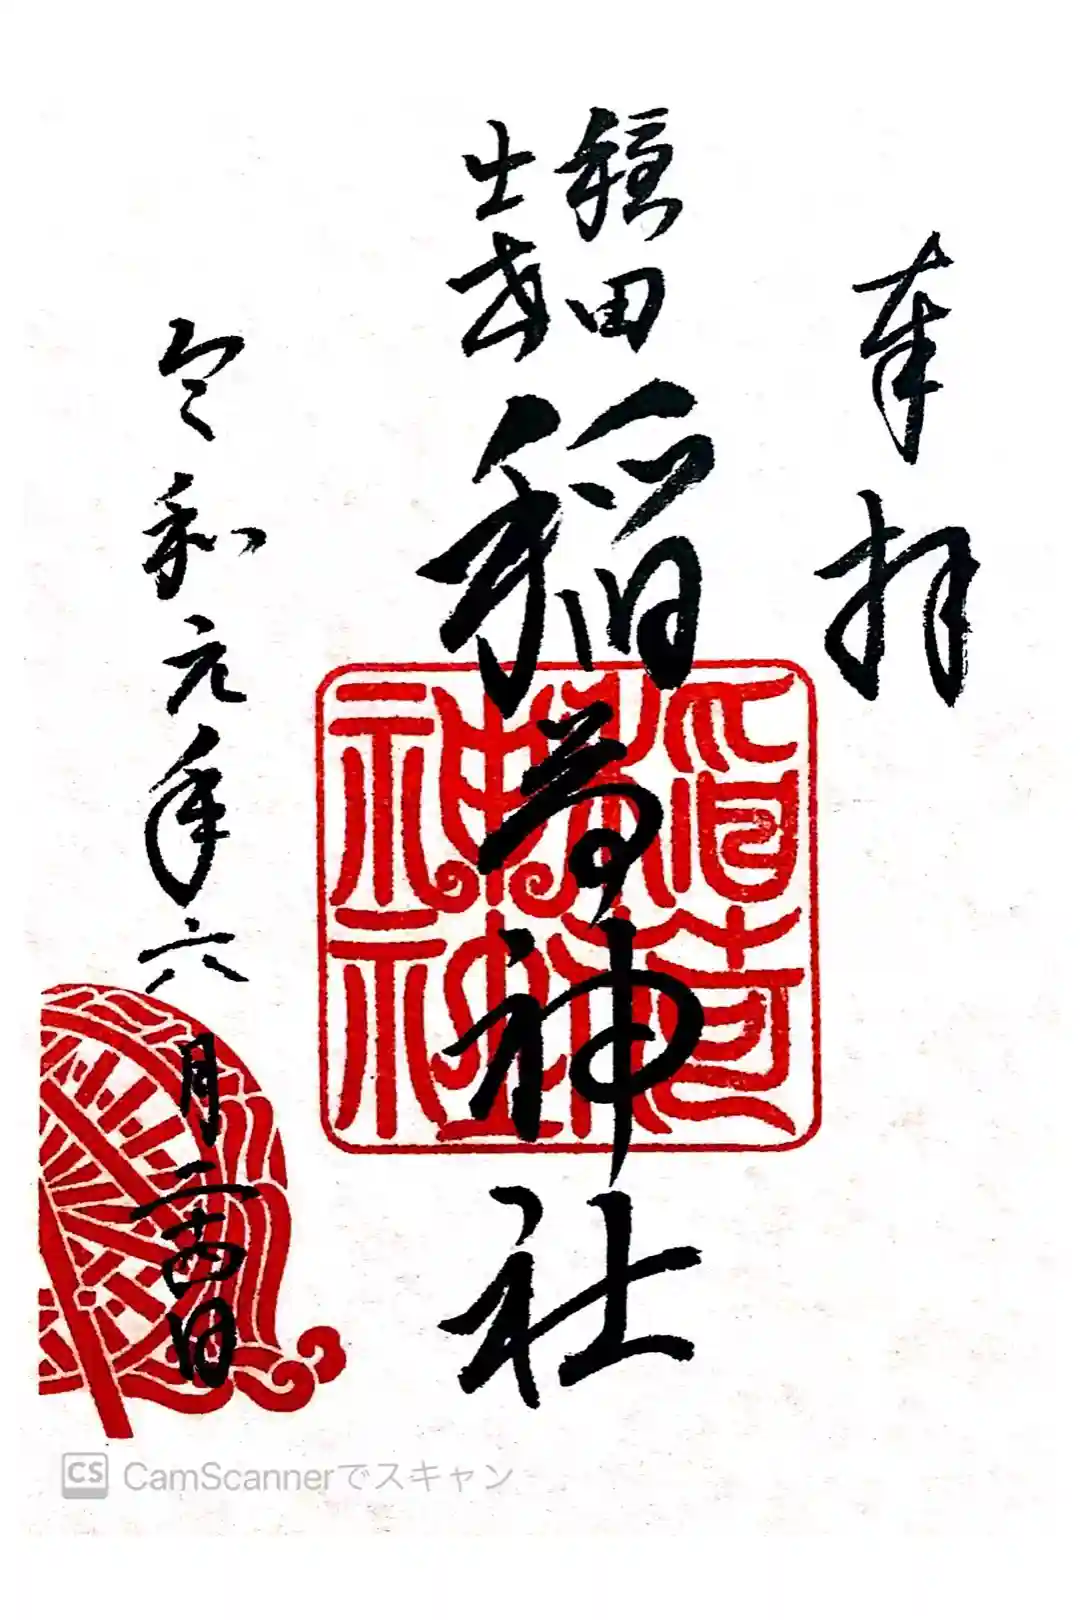 奉拝
田
稲荷神社
稲荷
神社
令和元年六月二十四日
CS CamScannerでスキャン